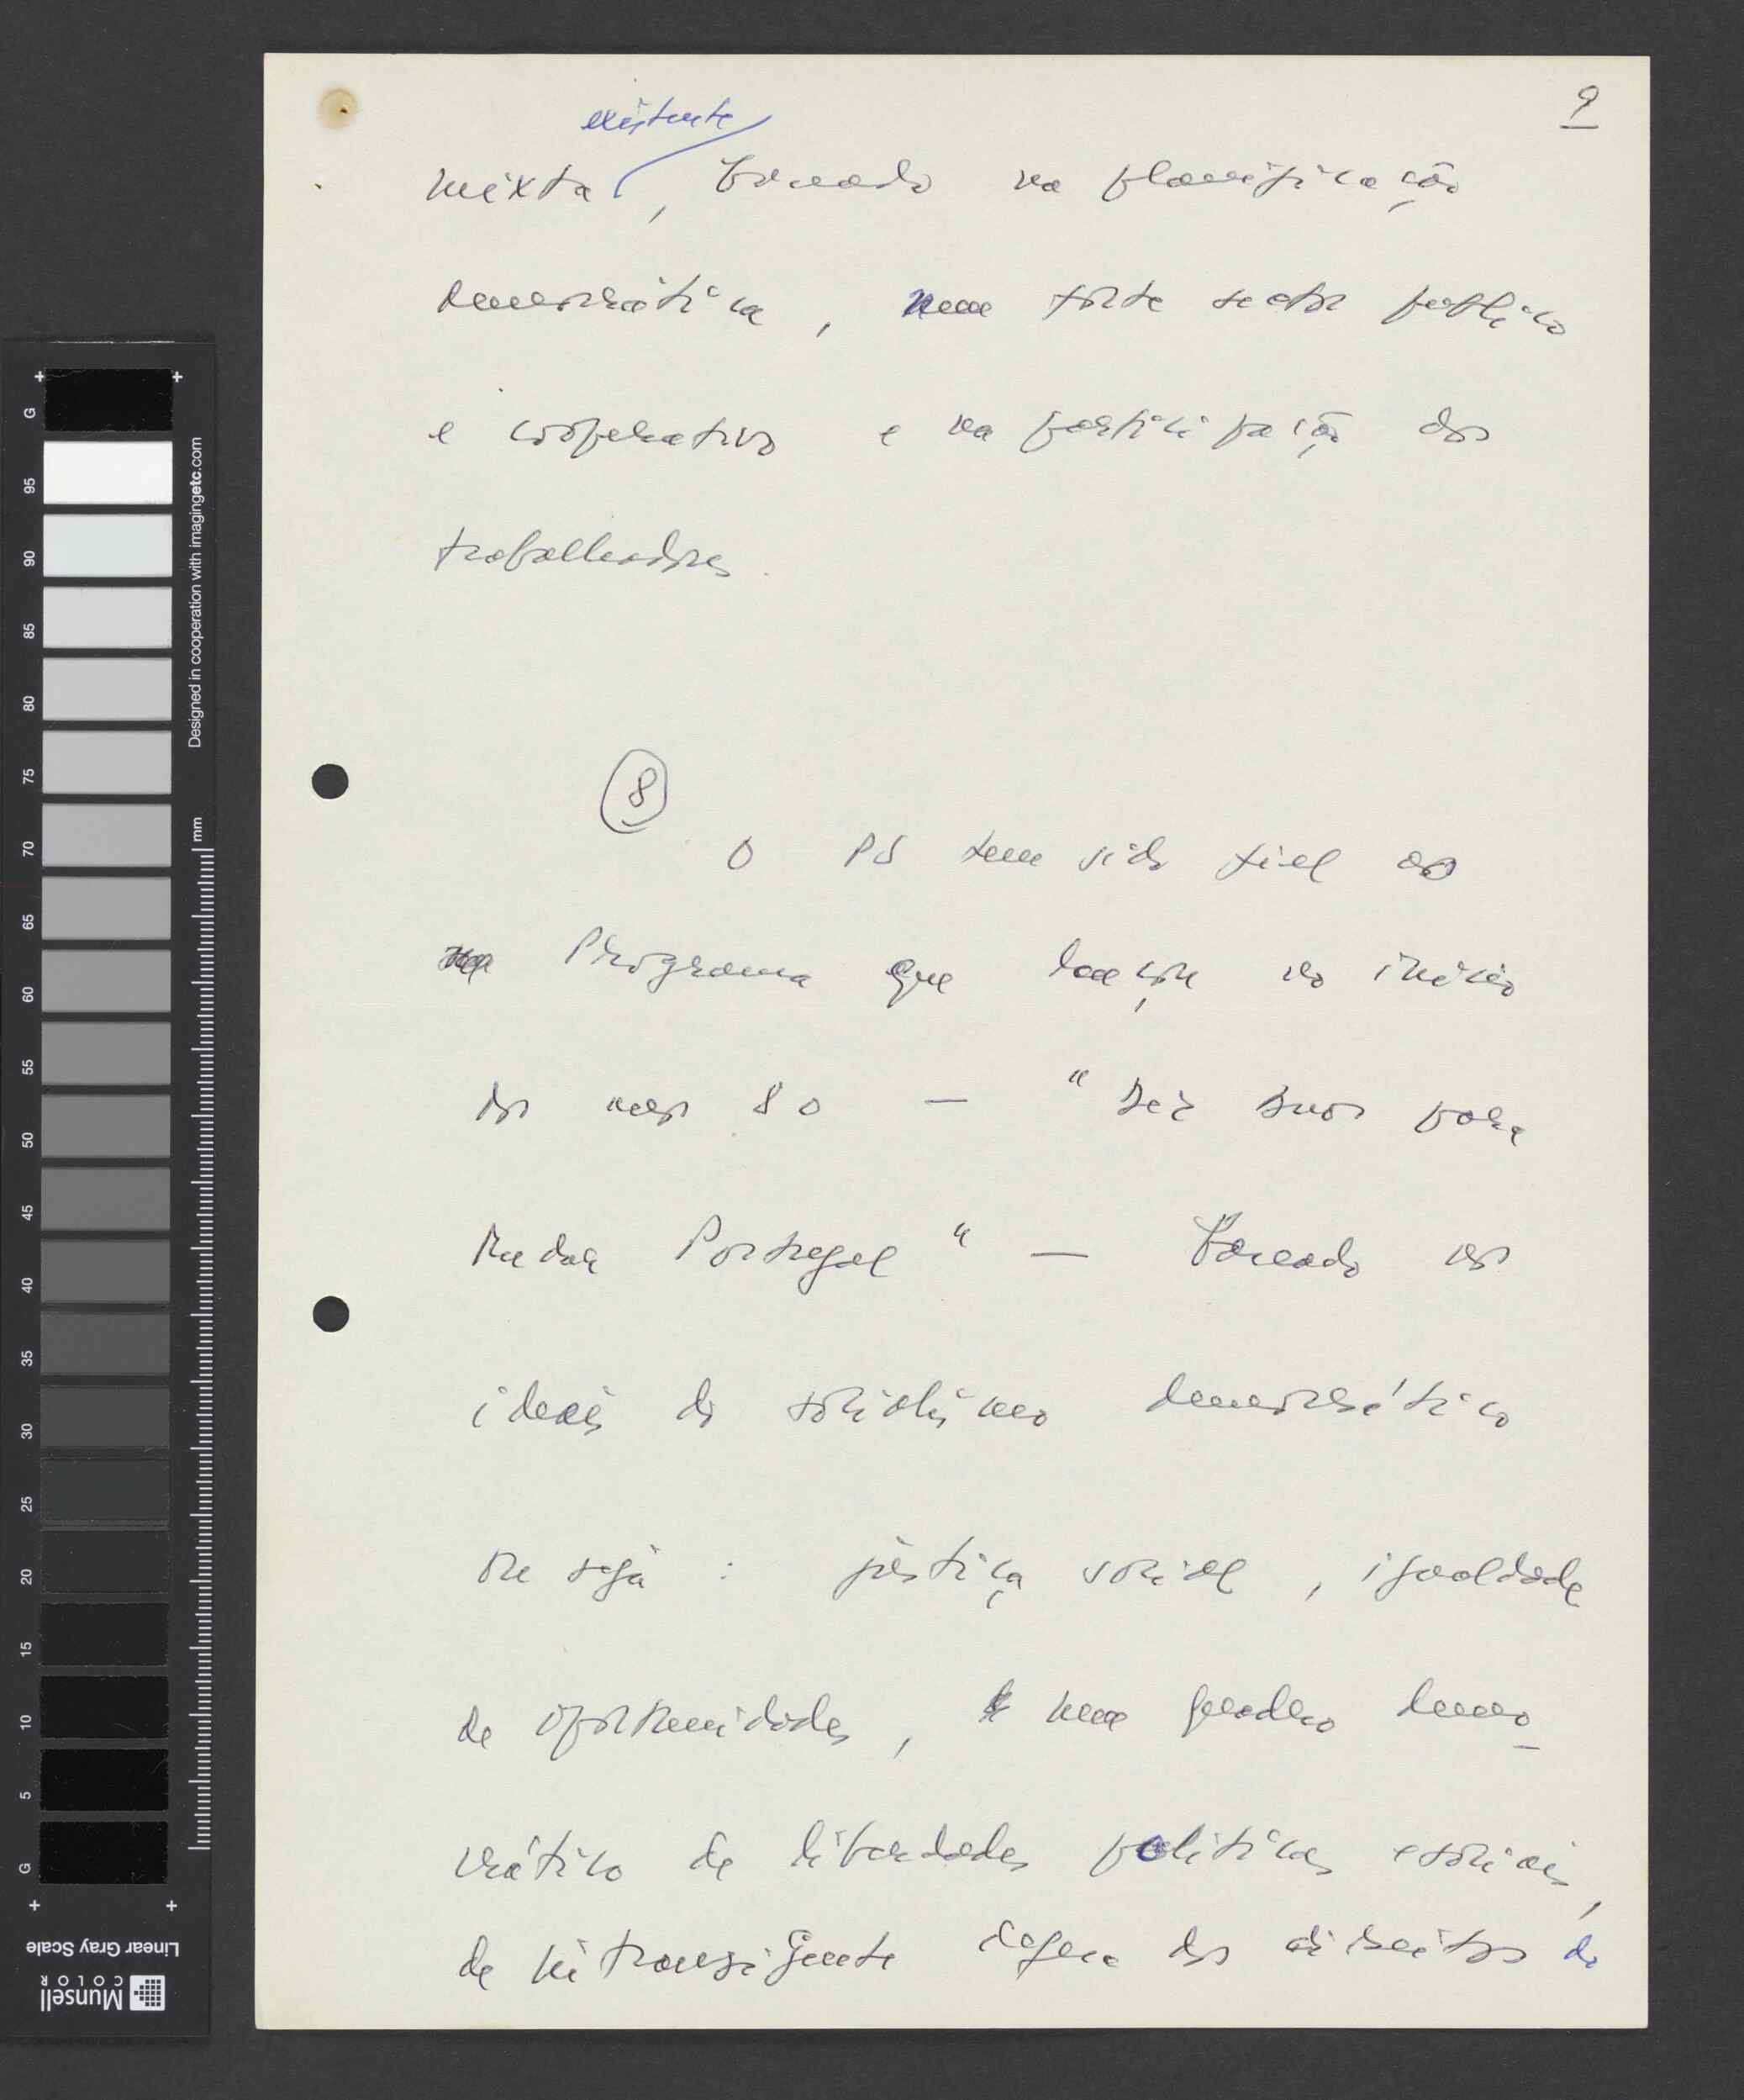 9
existente
mixta, baseado na planificação
democrática, num forte sector público
e cooperativo e na participação dos
trabalhadores.
8
O PS tem sido fiel ao
Programa que lançou no início
dos anos 80 — "Dez anos para
Mudar Portugal" — baseado nos
ideais do socialismo democrático
ou seja : justiça social, igualdade
de oportunidades, num quadro demo_
crático de liberdades politicas e sociais,
de intransigente defesa dos direitos do
+ +
G
95
90
85
80
75
70
65
60
55
50
45
40
35
30
25
20
15
10
5
G
+ +
Designed in cooperation with imagingetc.com
mm
Linear Gray Scale
Munsell
COLOR